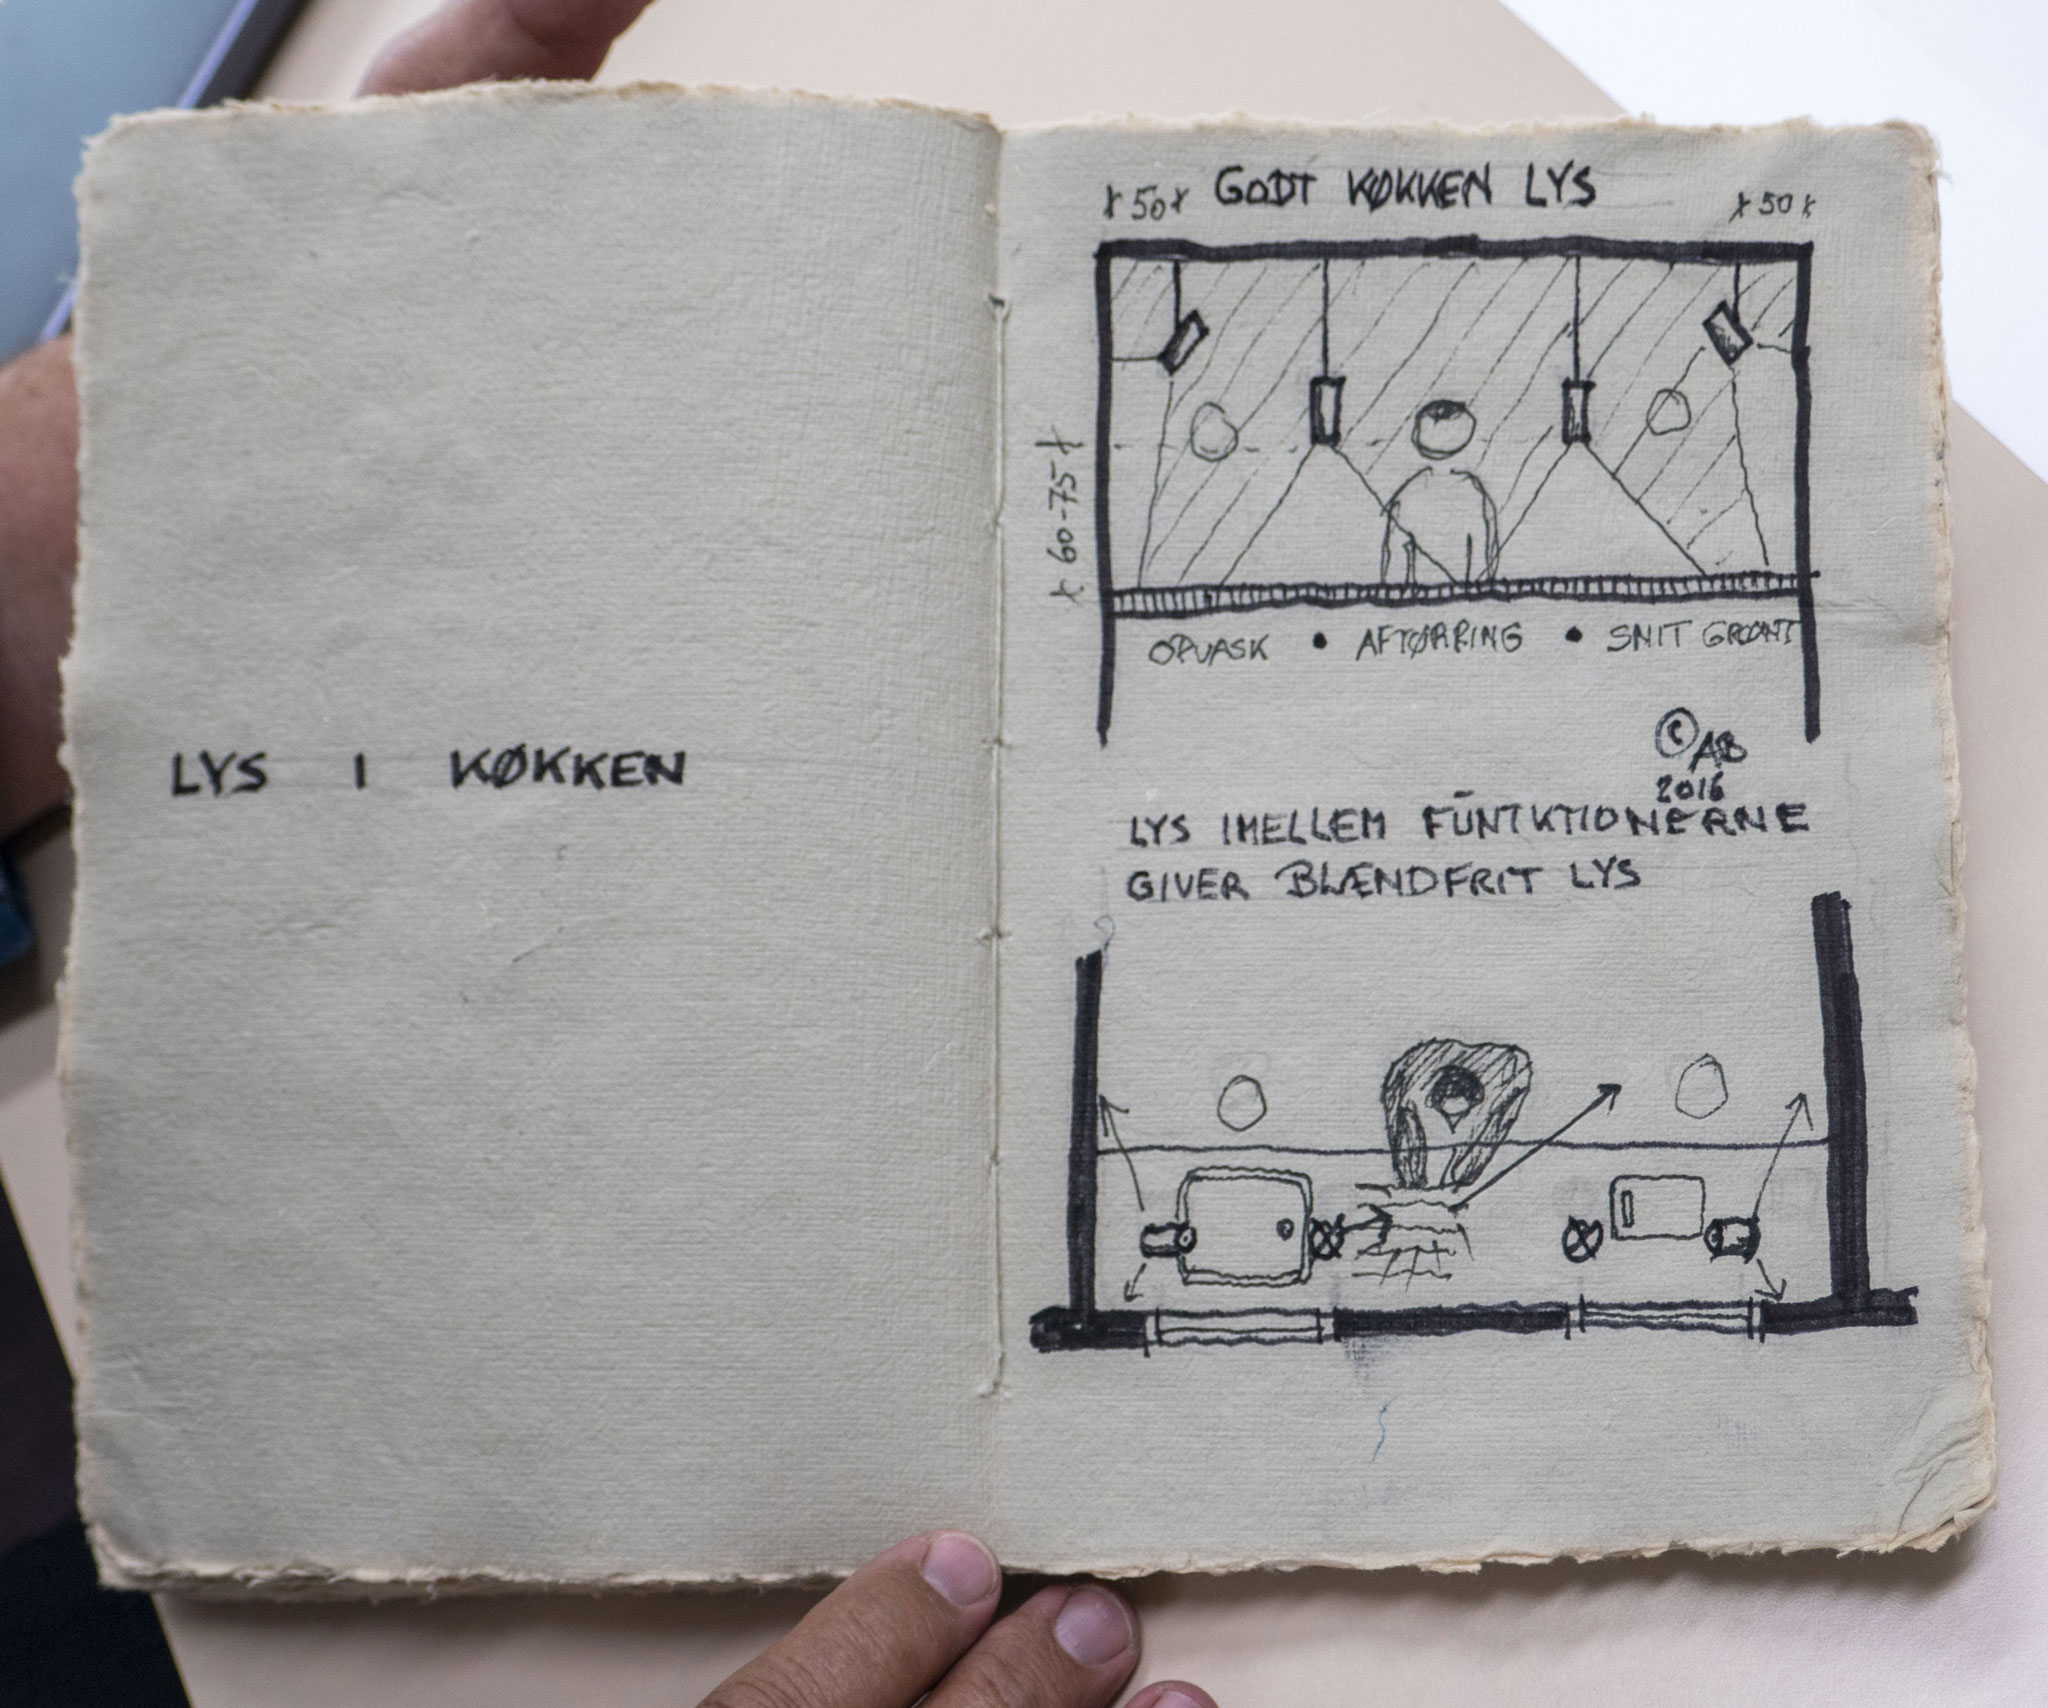 LYS I KØKKEN
x 50 x GODT KØKKEN LYS x 50 x
x 60-75 x
OPVASK • AFTØRRING • SNIT GRØNT
© AB
2016
LYS IMELLEM FUNTKTIONERNE
GIVER BLÆNDFRIT LYS